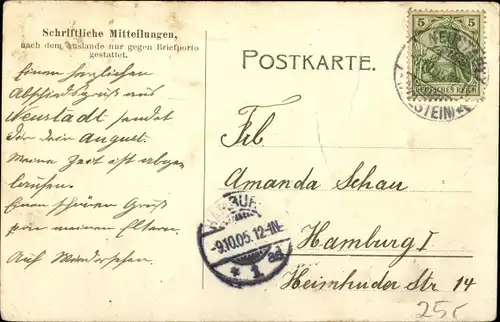 Schriftliche Mitteilungen,
nach dem Auslande nur gegen Briefporto
gestattet.
Einen herzlichen
Abschiedsgruß aus
Neustadt sendet
Dir dein August.
Meine Zeit ist abge
laufen.
Einen schönen Gruß
von meinen Eltern.
Auf Wiedersehen.
POSTKARTE.
5 5
DEUTSCHES REICH
HOLSTEIN) *
Frl.
Amanda Schau
Hamburg I
Heimhuder Str. 14
HAMBURG
-9.10.05. 12-1N.
* 1
25c